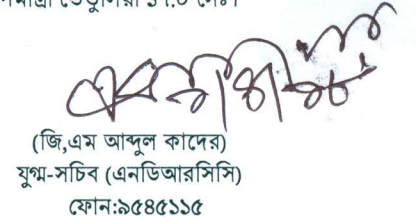 তেঁতুলিয়া ১৭.০ সেঃ।
(জি,এম আব্দুল কাদের)
যুগ্ম-সচিব (এনডিআরসিসি)
ফোন:৯৫৪৫১১৫